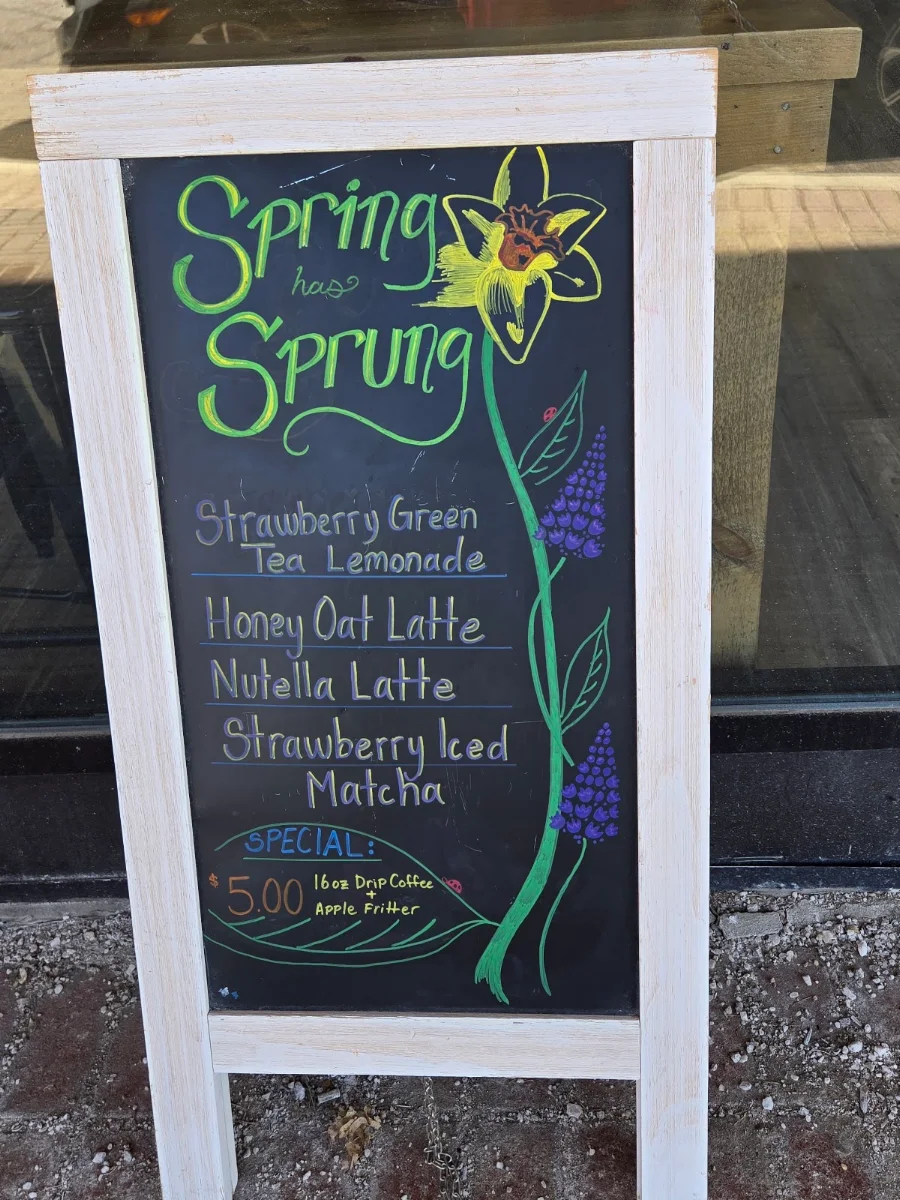 Spring
has
Sprung
Strawberry Green
Tea Lemonade
Honey Oat Latte
Nutella Latte
Strawberry Iced
Matcha
SPECIAL:
$5.00 16oz Drip Coffee
+
Apple Fritter